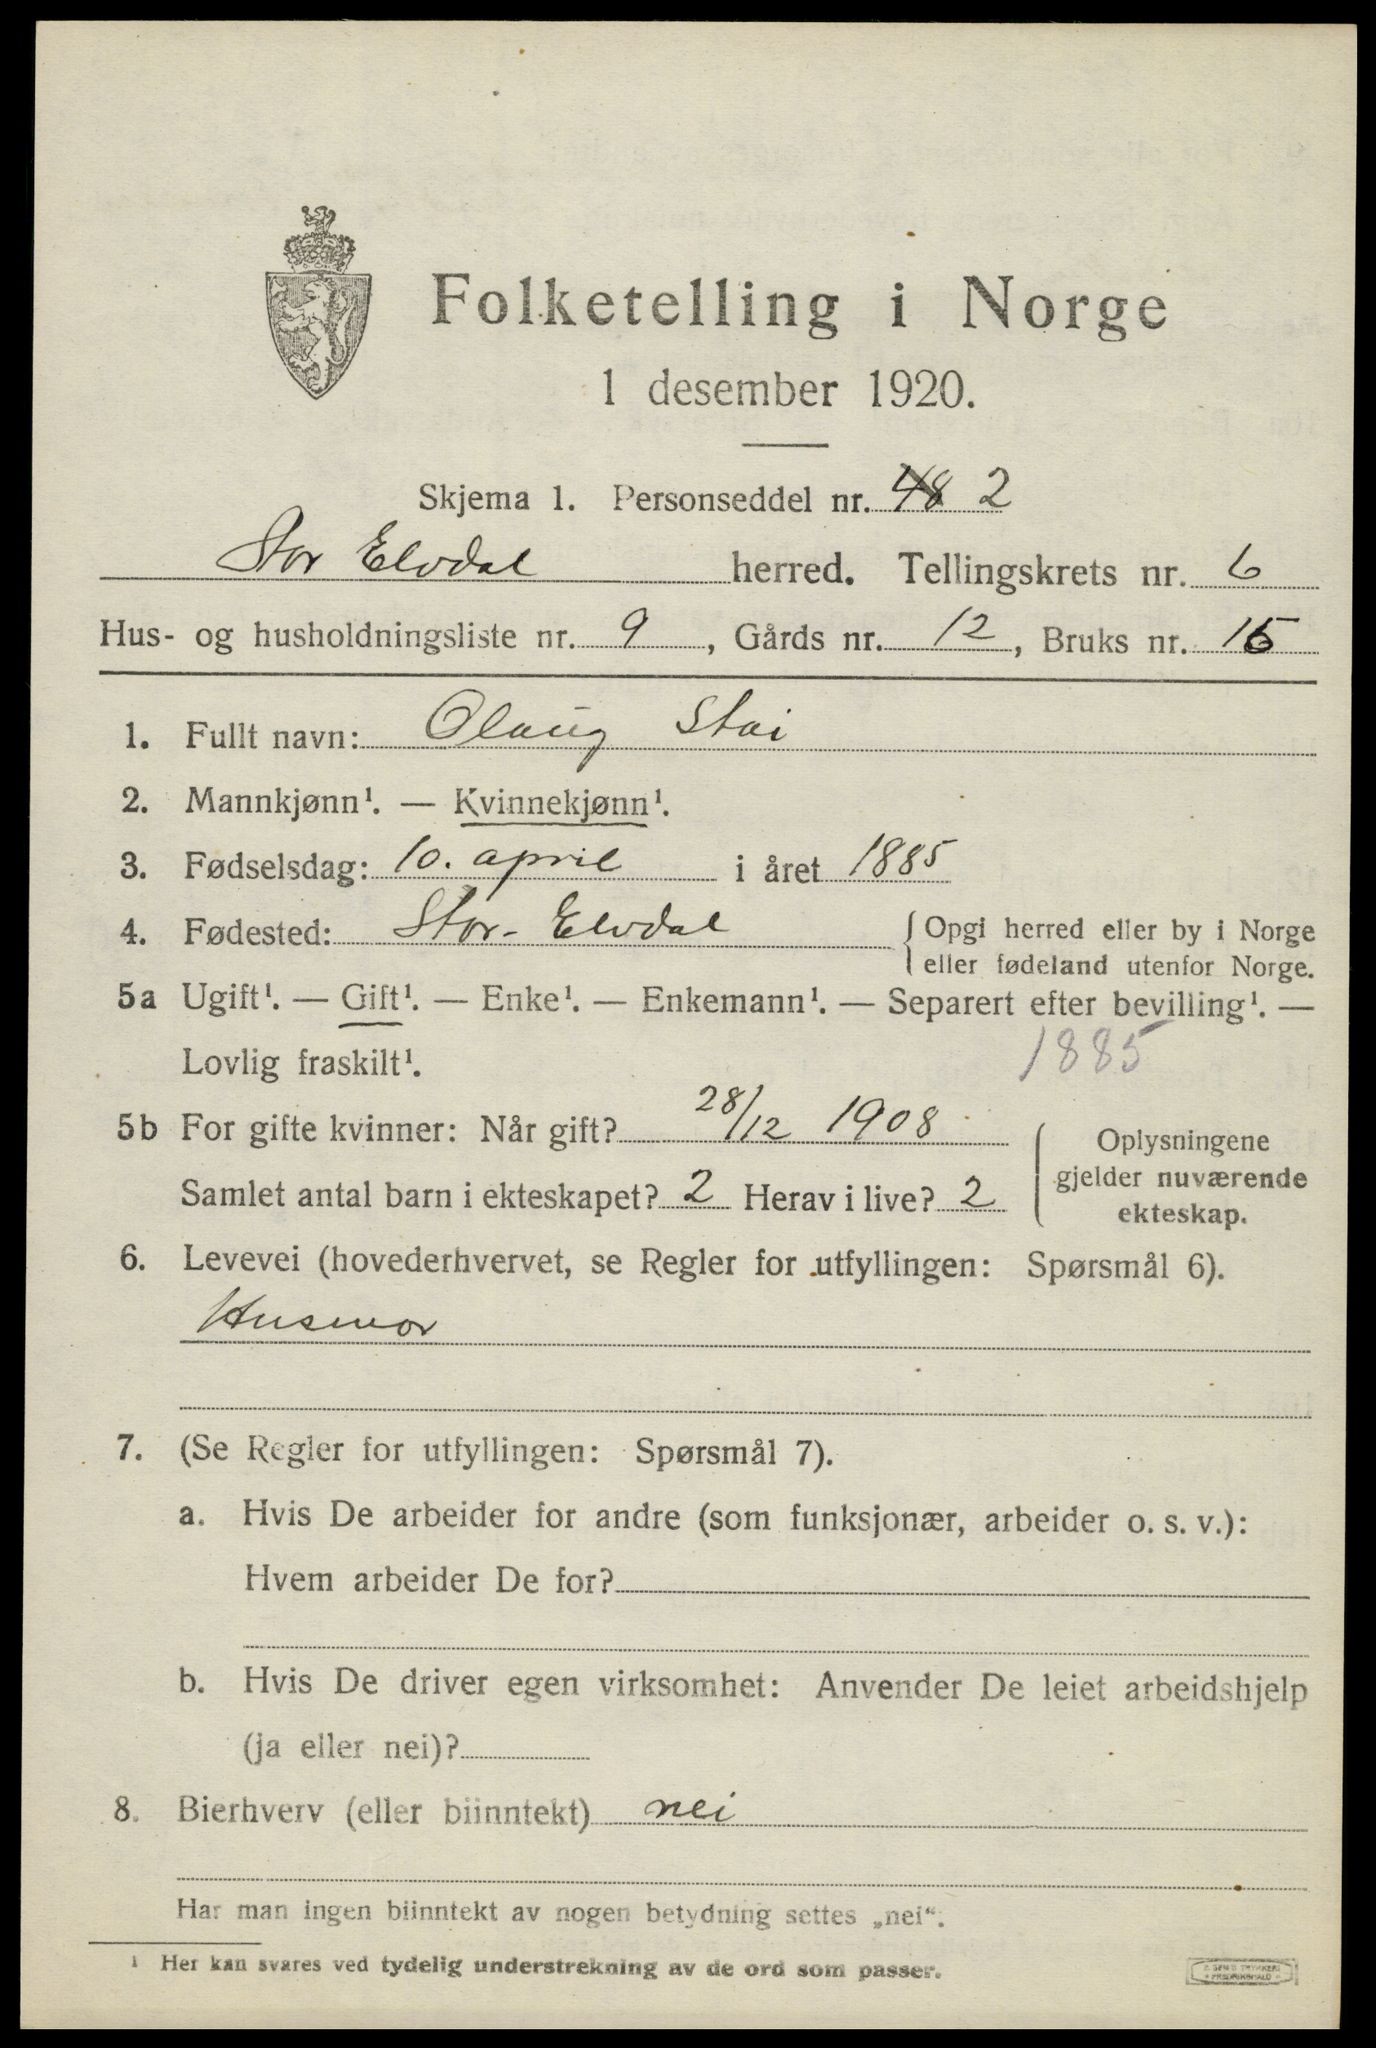 Folketelling i Norge
1 desember 1920.
Skjema 1. Personseddel nr. 48 2
Stor Elvdal herred. Tellingskrets nr. 6
Hus- og husholdningsliste nr. 9, Gårds nr. 12, Bruks nr.
1. Fullt navn: Olaug Stai
2. Mannkjønn¹. — Kvinnekjønn¹.
3. Fødselsdag: 10. april i året 1885
4. Fødested: Stor-Elvdal { Opgi herred eller by i Norge
eller fødeland utenfor Norge.
5a Ugift¹. — Gift¹. — Enke¹. — Enkemann¹. — Separert efter bevilling¹. —
Lovlig fraskilt¹. 1885
5b For gifte kvinner: Når gift? 28/12 1908
Samlet antal barn i ekteskapet? 2 Herav i live? 2
Oplysningene
gjelder nuværende
ekteskap.
6. Levevei (hovederhvervet, se Regler for utfyllingen: Spørsmål 6).
Husmor
7. (Se Regler for utfyllingen: Spørsmål 7).
a. Hvis De arbeider for andre (som funksjonær, arbeider o. s. v.):
Hvem arbeider De for?
b. Hvis De driver egen virksomhet: Anvender De leiet arbeidshjelp
(ja eller nei)?
8. Bierhverv (eller biinntekt) nei
Har man ingen biinntekt av nogen betydning settes „nei“.
¹ Her kan svares ved tydelig understrekning av de ord som passer.